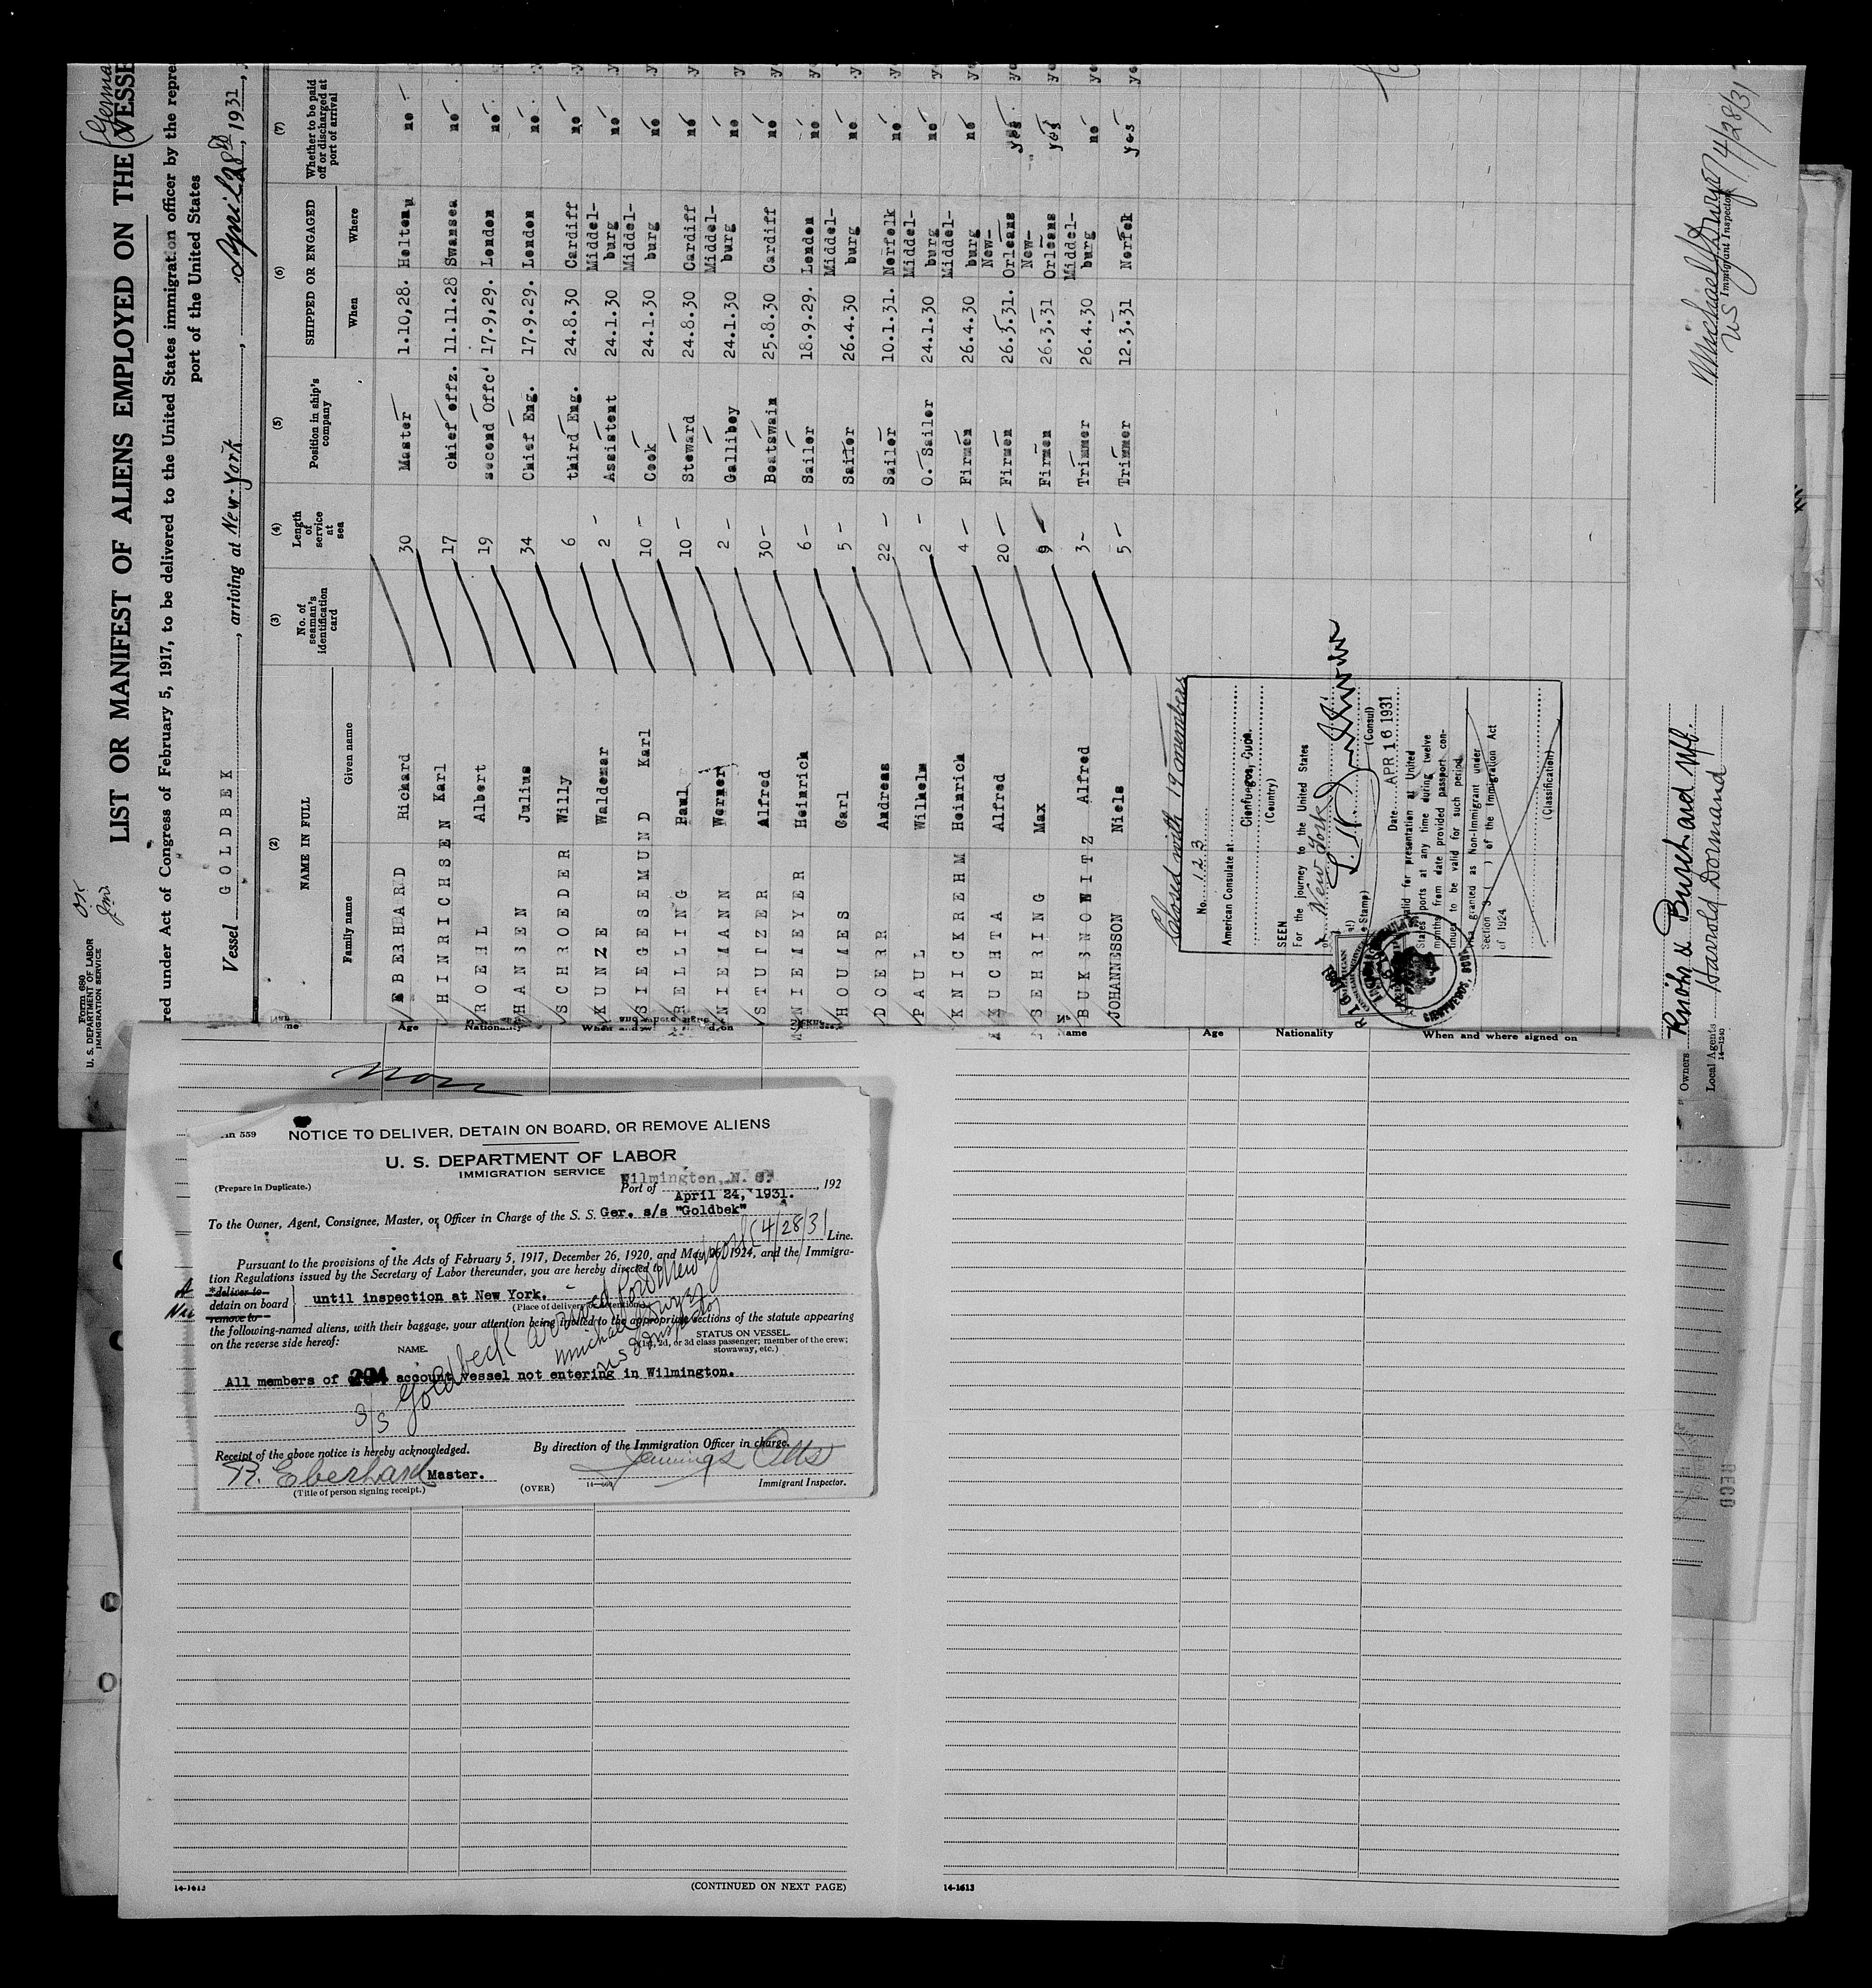 Form 680
U. S. DEPARTMENT OF LABOR
IMMIGRATION SERVICE
LIST OR MANIFEST OF ALIENS EMPLOYED ON THE VESSE
red under Act of Congress of February 5, 1917, to be delivered to the United States immigration officer by the repre
port of the United States
Vessel GOLDBEK, arriving at New-York, April 28th, 1931,
(2) (3) (4) (5) (6) (7)
NAME IN FULL No. of seaman's identification card Length of service at sea Position in ship's company SHIPPED OR ENGAGED Whether to be paid off or discharged at port of arrival
Family name Given name When Where
EBERHARD Richard 30 Master 1.10,28. Heltenu no
HINRICHSEN Karl 17 chief offz. 11.11.28 Swansea no
ROEHL Albert 19 second Offc' 17.9,29. London no
HANSEN Julius 34 Chief Eng. 17.9.29. London no
SCHROEDER Willy 6 third Eng. 24.8.30 Cardiff no
KUNZE Waldemar 2 - Assistent 24.1.30 Middel-burg no
SIEGESEMUND Karl 10 - Cook 24.1.30 Middel-burg no
RELLING Paul 10 - Steward 24.8.30 Cardiff no
NIEMANN Werner 2 - Galliboy 24.1.30 Middel-burg no
STUTZER Alfred 30 - Boatswain 25.8.30 Cardiff no
NIEMEYER Heinrich 6 - Sailor 18.9.29. London no
HOUMES Carl 5 - Sailor 26.4.30 Middel-burg no
DOERR Andreas 22 - Sailor 10.1.31. Norfolk no
PAUL Wilhelm 2 - O. Sailor 24.1.30 Middel-burg no
KNICKREHM Heinrich 4 - Firmen 26.4.30 Middel-burg no
KUCHTA Alfred 20 - Firmen 26.3.31. New-Orleans yes
SEHRING Max 9 - Firmen 26.3.31 New-Orleans yes
BUKSNOWITZ Alfred 3 - Trimmer 26.4.30 Middel-burg no
JOHANNESSON Niels 5 - Trimmer 12.3.31 Norfok yes
Closed with 19 members
No. 123
American Consulate at
Cienfuegos, Cuba
(Country)
SEEN
For the journey to the United States
New York
(Consul)
Date APR 16 1931
Valid for presentation at United
States ports at any time during twelve
months from date provided passport con-
tinues to be valid for such period.
Visa granted as Non-Immigrant under
Section 3 ( ) of the Immigration Act
of 1924
(Classification)
Owners Knöhr & Burchard Nfl.
Local Agents Harold Dormand
14-1240
Michael J Dwyer 4/28/31
US Immigrant Inspector
Age Nationality
Name Age Nationality When and where signed on
NOTICE TO DELIVER, DETAIN ON BOARD, OR REMOVE ALIENS
U. S. DEPARTMENT OF LABOR
IMMIGRATION SERVICE
(Prepare in Duplicate.)
Wilmington, N. C.
Port of , 192
April 24, 1931.
To the Owner, Agent, Consignee, Master, or Officer in Charge of the S. S. Ger. s/s "Goldbek"
Line.
Pursuant to the provisions of the Acts of February 5, 1917, December 26, 1920, and May 26, 1924, and the Immigra-
tion Regulations issued by the Secretary of Labor thereunder, you are hereby directed to
*deliver to
detain on board until inspection at New York.
remove to (Place of delivery or detention)
the following-named aliens, with their baggage, your attention being invited to the appropriate sections of the statute appearing
on the reverse side hereof:
NAME. STATUS ON VESSEL.
(1st, 2d, or 3d class passenger; member of the crew;
stowaway, etc.)
All members of account vessel not entering in Wilmington.
S/S Goldbeck arrived Port New York 4/28/31
Michael J Dwyer
US Inspector
Receipt of the above notice is hereby acknowledged. By direction of the Immigration Officer in charge.
R. Eberhard Master. Jennings Otts
(Title of person signing receipt.) (OVER) Immigrant Inspector.
14-1613 (CONTINUED ON NEXT PAGE) 14-1613
RECD